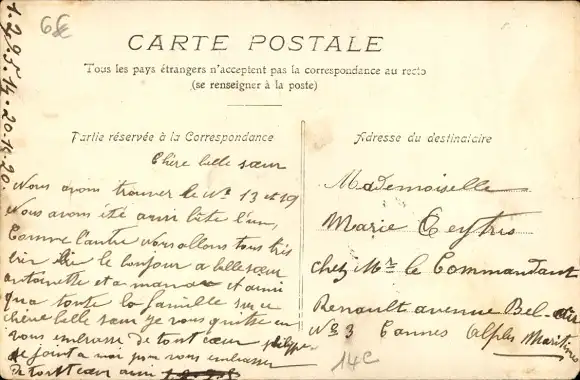 1.2.95.14.20.19.20.
68
CARTE POSTALE
Tous les pays étrangers n'acceptent pas la correspondance au recto
(se renseigner à la poste)
Partie réservée à la Correspondance
Chère belle sœur
Nous avons trouver le No 13 et 19
Nous avons été aussi bête l'un,
Comme l'autre Nous allons tous très
bien le bonjour a belle sœur
antoinette et a et aussi
qua toute la famille sur ce
chère belle sœur je vous quitte en
vous embrasse de tout cœur philippe
se joint a moi pour vous embrasser
de tout cœur aussi
Adresse du destinataire
Mademoiselle
Marie Ceytris
chez Mr le Commandant
Renault avenue Bel-air
No 3 Cannes Alples Maritimes
14C